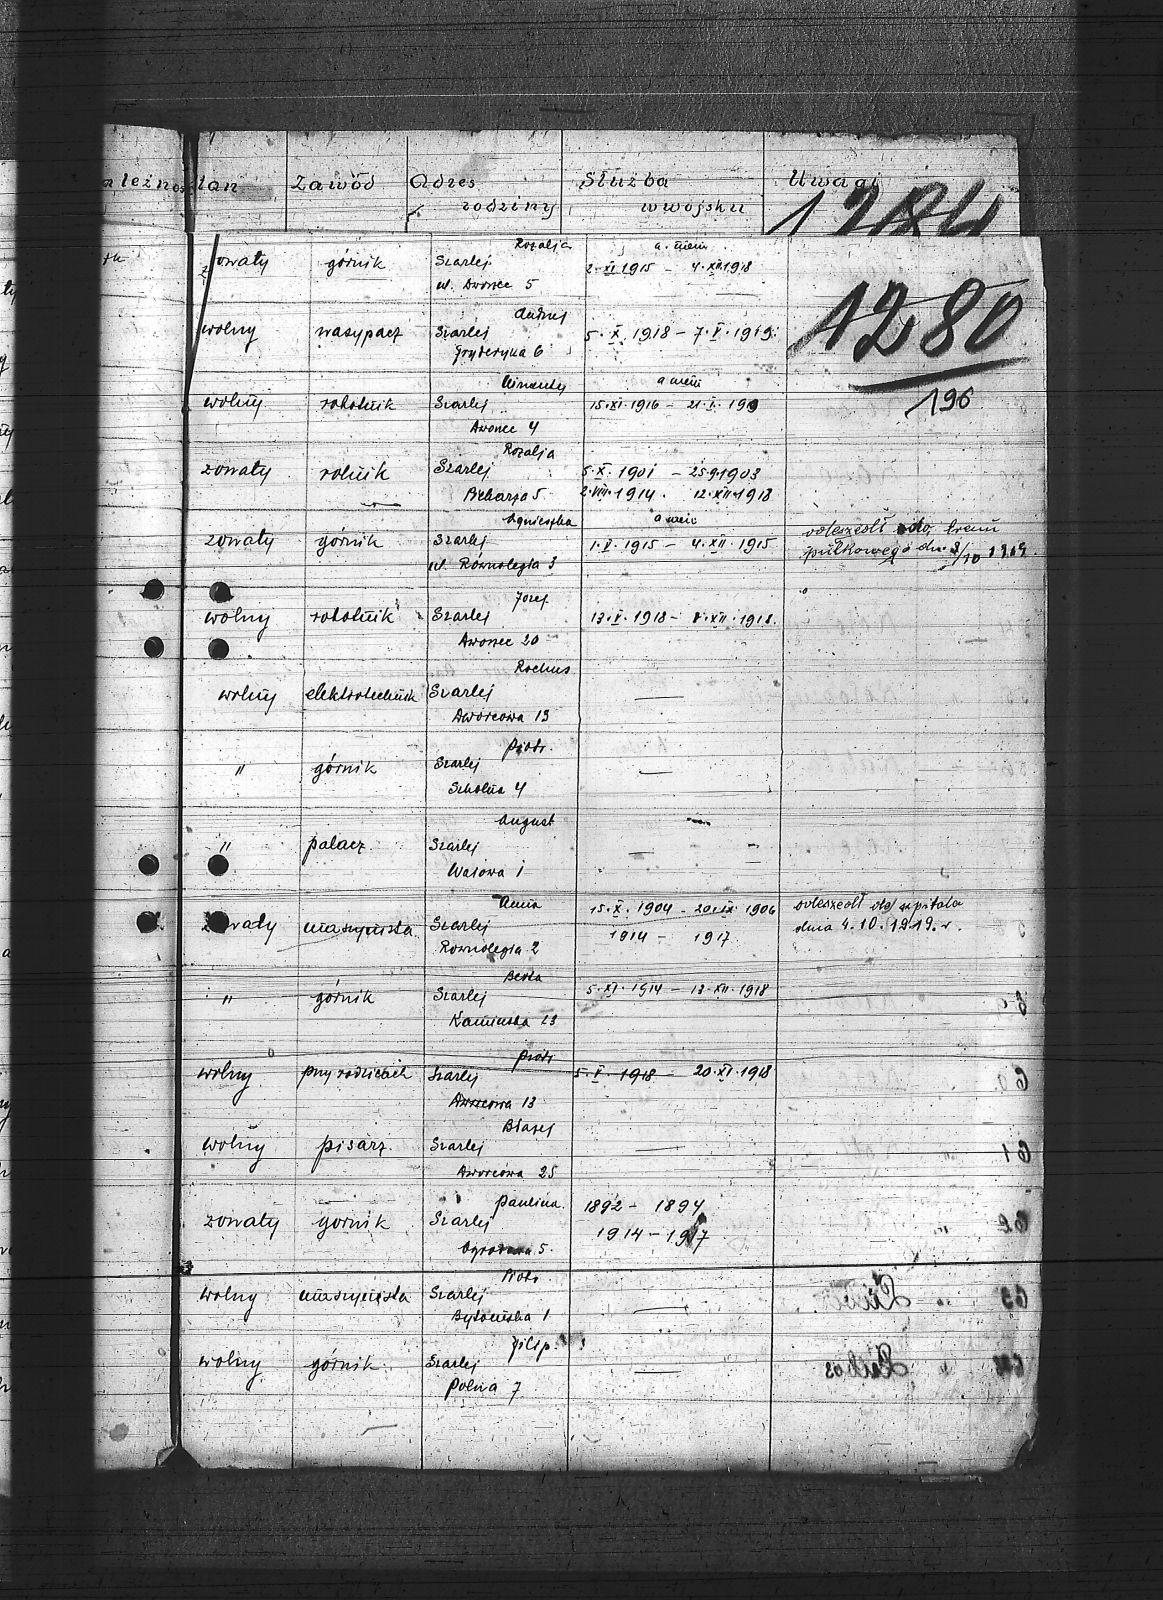 Stan Zawód Adres Służba Uwagi
rodziny w wojsku
1284
Rozalja a. niem
żonaty górnik Szarlej 2. XI 1915 – 4. XII 1918
ul. Dworec 5
1280
wolny Szarlej 5. X. 1918 – 7. V. 1919.
Fryderyka 6
a niem
wolny robotnik Szarlej 15. XI. 1916 – 21. I. 1919
196
Dworec 4
Rozalja
żonaty rolnik Szarlej 5. X. 1901 – 25 9. 1903
Piekarska 5 2. VIII. 1914. 12. XII. 1918
Agnieszka a niem
żonaty górnik Szarlej 1. V. 1915 – 4. XII. 1915
odeszedł do trenu
pułkowego dn. 3/10 1919.
ul. Równoległa 3
Józef
wolny robotnik Szarlej 13. V. 1918 – 8. XII. 1918.
Dworec 20
Rochus
wolny elektrotechnik Szarlej —
Dworcowa 13
Piotr.
" górnik Szarlej —
Szkolna 4
August
" palacz. Szarlej — –
Wałowa 1
Anna 15. X. 1904 – 20 IX 1906
odeszedł do szpitala
żonaty maszynista Szarlej 1914 – 1917
dnia 4. 10. 1919. r.
Równoległa 2
Berta 5. XI. 1914 – 13. XII. 1918
" górnik Szarlej
Kamińska 23
Piotr
wolny przy rodzicach Szarlej 5. V. 1918 – 20. XI. 1918
Dworcowa 13
Błażej
wolny pisarz Szarlej —
Dworcowa 25
Paulina. 1892 – 1894
żonaty górnik Szarlej
1914 – 1917
Ogrodowa 5.
Piotr
wolny maszynista Szarlej —
Bytomska 1
Filip.
wolny górnik. Szarlej —
Polna 7